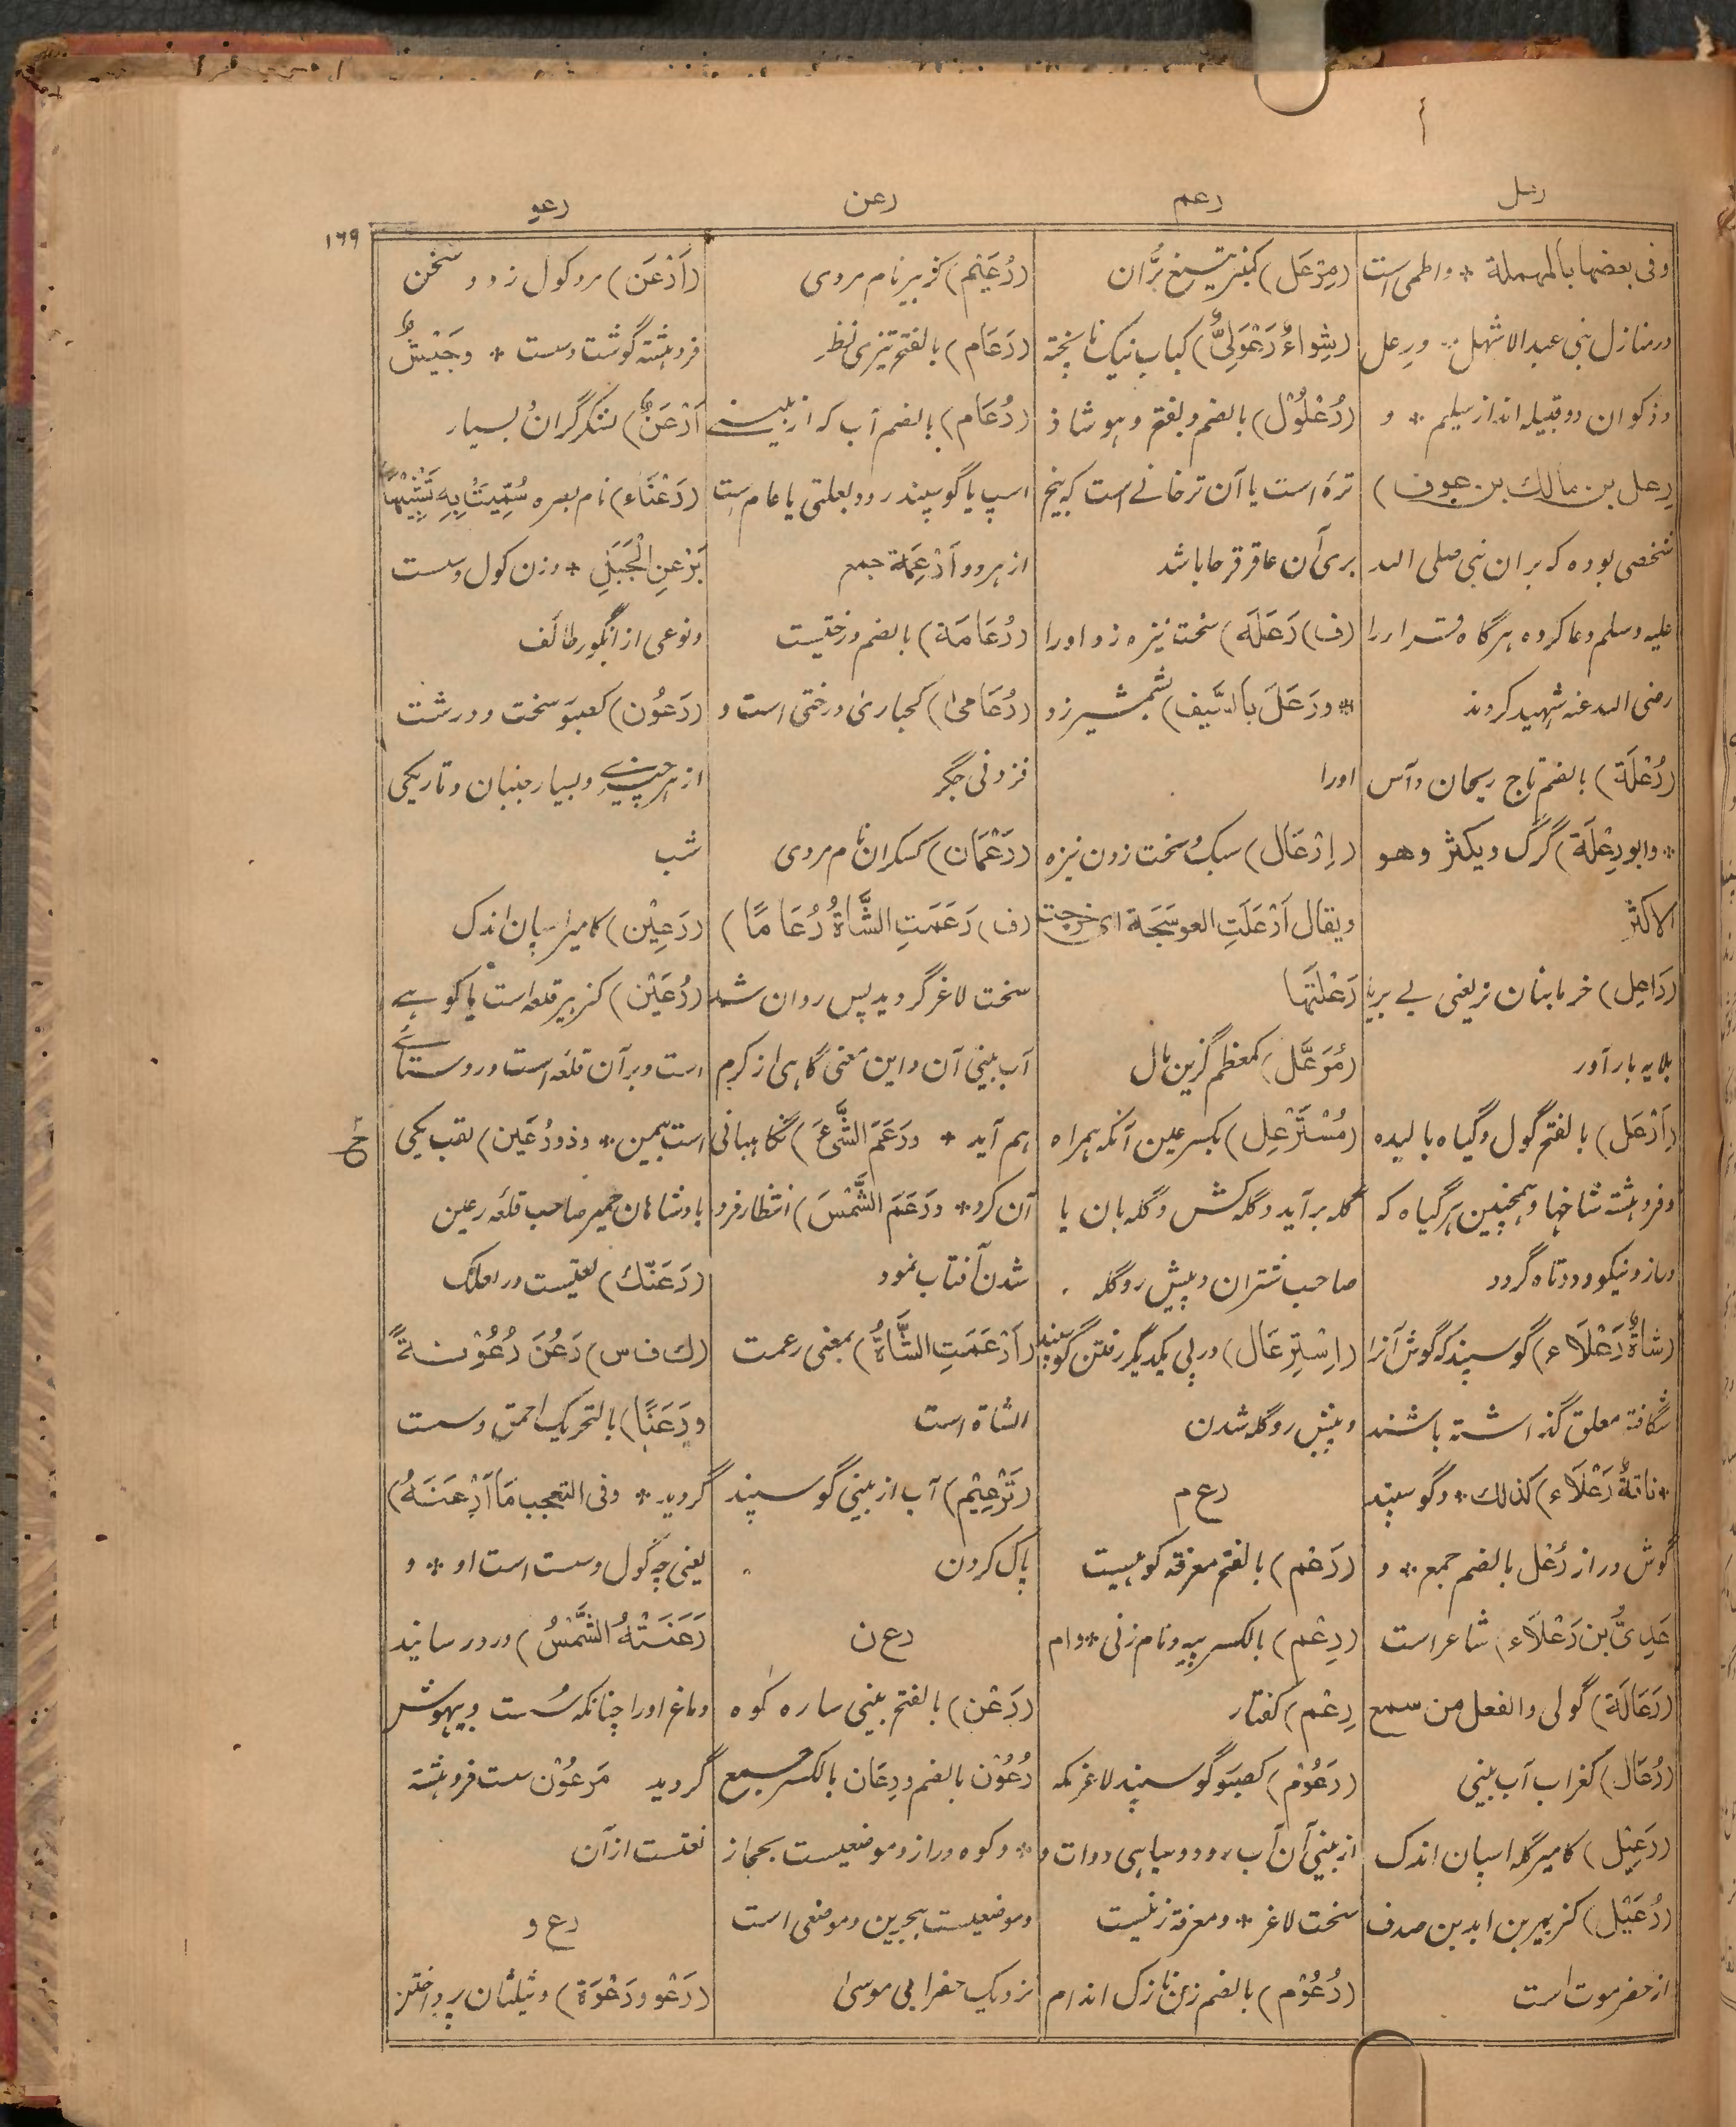 رعل
رعم
رعن
رعو
۱۶۹
وفی بعضها بالمهملة * واطمی است
در منازل بنی عبد الاشهل * ورعل
وذکوان دو قبیله اند از سلیم * و
رِعل بن مالك بن عوف)
شخصی بوده که بران نبی صلی الله
علیه وسلم دعا کرده هرگاه قراء را
رضی الله عنه شهید کردند
(رُعْلَة) بالضم تاج ریحان و آس
* وابو رِعْلَة) گرگ ویکثر وهو
الاکثر
(رَاعِل) خرمابنان نر یعنی بے بریا
بلایه بار آور
(اَرْعَل) بالفتح گول و گیاه بالیده
و فروهشته شاخها و همچنین هر گیاه که
دراز و نیکو و دوتاه گردد
(شاةٌ رَعْلَاء) گوسپند که گوش آنرا
شگافته معلق گذاشته باشند
* ناقةٌ رَعْلَاء) کذلك * و گوسپند
گوش دراز رُعْل بالضم جمع * و
عَدِیُّ بن رَعْلَاء) شاعر است
(رَعَالَة) گولی والفعل من سمع
(رُعَال) کغراب آب بینی
(رَعِیْل) کامیر گله اسپان اندک
(رُعَیْل) کزبیر بن ابد بن صدف
از حضرموت است
(مِرْعَل) کمنبر تیغ بُرّان
(شِواءٌ رَعْوَلِیٌّ) کباب نیک ناپخته
(رُعْلُوْل) بالضم و بفتح و هو شاذ
تره است یا آن ترخانے است که بیخ
بری آن عاقر قرحا باشد
(ف) رَعَلَه) سخت نیزه زد او را
* ورَعَلَ بالسَّیف) شمشیر زد
اورا
(اِرْعَال) سبک و سخت زدن نیزه
ویقال اَرْعَلَتِ العوسَجَة ای خرجت
رَعْلَتَها
(مُرَعَّل) کمعظم گزین مال
(مُسْتَرْعِل) بکسر عین آنکه همراه
گله برآید و گله کش و گله بان یا
صاحب شتران و پیش رو گله
(اِسْتِرْعَال) در پی یکدیگر رفتن گوسپند
و پیش رو گله شدن
رع م
(رَعْم) بالفتح معرفة کوهیست
(رِعْم) بالکسر پیه و نام زنی * و ام
رِعْم) کفتار
(رَعُوْم) کصبور گوسپند لاغر که
از بینی آن آب رود و سیاهی دوات و
سخت لاغر * ومعرفة زنیست
(رُعُوْم) بالضم زن نازک اندام
(رُعَیْم) کزبیر نام مردی
(رَعَام) بالفتح تیزی نظر
(رُعَام) بالضم آب که از بینے
اسپ یا گوسپند رود بعلتی یا عام ست
از هر دو اَرْعِمَة جمع
(رُعَامَة) بالضم درختیست
(رُعَامیٰ) کحباریٰ درختی است و
فزونی جگر
(رَعْمَان) کسکران نام مردی
(ف) رَعَمَتِ الشَّاةُ رُعَامًا)
سخت لاغر گردید پس روان شد
آب بینی آن و این معنی گاهی از کرم
هم آید * ورَعَمَ الشَّیءَ) نگاهبانی
آن کرد * ورَعَمَ الشَّمْسَ) انتظار فرو
شدن آفتاب نمود
(اَرْعَمَتِ الشَّاةُ) بمعنی رعمت
الشاة است
(تَرْعِیْم) آب از بینی گوسپند
پاک کردن
رع ن
(رَعْن) بالفتح بینی ساره کوه
رُعُوْن بالضم ورِعَان بالکسر جمع
* و کوه دراز و موضعیست بحجاز
و موضعیست ببحرین و موضعی است
نزدیک حفر ابی موسیٰ
(اَرْعَن) مرد کول زود سخن
فروهشته گوشت و سست * وجَیْشٌ
اَرْعَنُ) لشکر گران بسیار
(رَعْنَاء) نام بصره سُمِّیَتْ بِهِ تَشْبِیْهًا
بَرَعْنِ الْجَبَلِ * و زن کول و سست
و نوعی از انگور طائف
(رَعُوْن) کصبور سخت و درشت
از هر چیزے و بسیار جنبان و تاریکی
شب
(رَعِیْن) کامیر اسپان اندک
(رُعَیْن) کزبیر قلعه است یا کوهے
است و بر آن قلعه است و روستائے
است بیمن * و ذو رُعَین) لقب یکی
بادشاهان حمیر صاحب قلعه رعین
(رَعَنَّك) لغتیست در لعلك
(ك ف س) رَعُنَ رُعُوْنَةً
ورَعَنًا) بالتحریک احمق و سست
گردید * وفی التعجب مَا اَرْعَنَهُ)
یعنی چه گول و سست است او * و
رَعَنَتْهُ الشَّمْسُ) در درسانید
دماغ او را چنانکه سست و بیهوش
گردید مَرعُوْن سست فروهشته
نعتست از آن
رع و
(رَعْو ورَعْوَة) و یثلثان